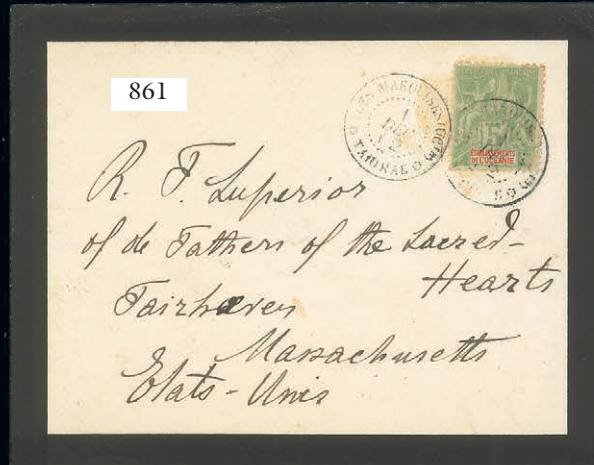 861
ILES MARQUISES
TAIOHAE
5
ETABLISSEMENTS
DE L'OCEANIE
R. F. Superior
of de Fathers of the Sacred-
Hearts
Fairhaven
Massachusetts
Etats-Unis